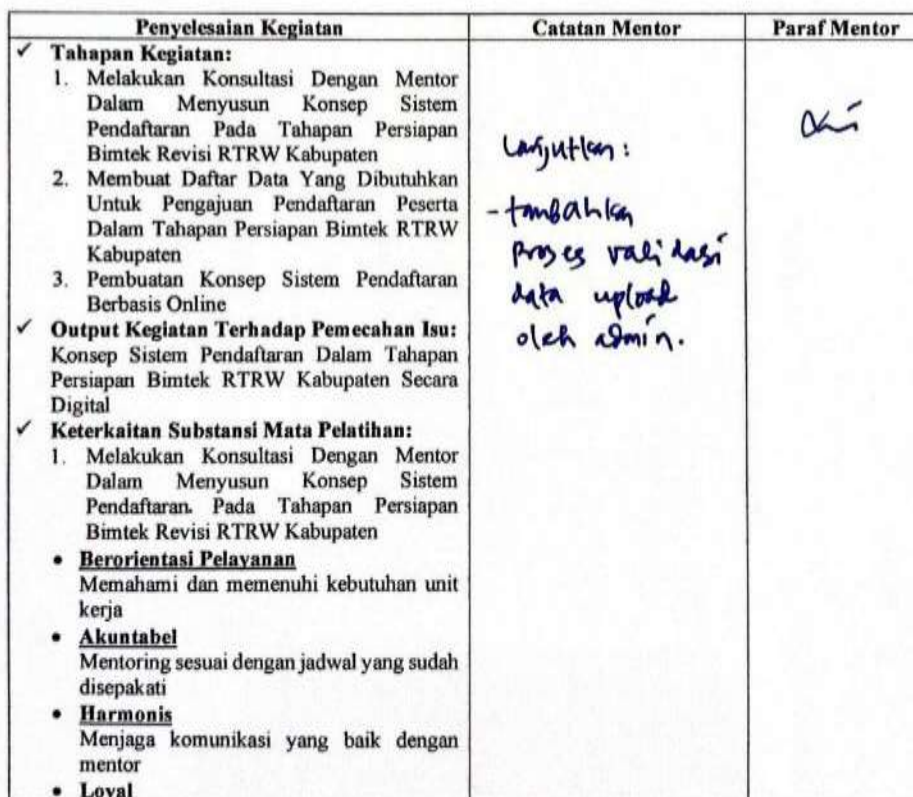 Penyelesaian Kegiatan
Catatan Mentor
Paraf Mentor
✓ Tahapan Kegiatan:
1. Melakukan Konsultasi Dengan Mentor
Dalam Menyusun Konsep Sistem
Pendaftaran Pada Tahapan Persiapan
Bimtek Revisi RTRW Kabupaten
2. Membuat Daftar Data Yang Dibutuhkan
Untuk Pengajuan Pendaftaran Peserta
Dalam Tahapan Persiapan Bimtek RTRW
Kabupaten
3. Pembuatan Konsep Sistem Pendaftaran
Berbasis Online
✓ Output Kegiatan Terhadap Pemecahan Isu:
Konsep Sistem Pendaftaran Dalam Tahapan
Persiapan Bimtek RTRW Kabupaten Secara
Digital
✓ Keterkaitan Substansi Mata Pelatihan:
1. Melakukan Konsultasi Dengan Mentor
Dalam Menyusun Konsep Sistem
Pendaftaran Pada Tahapan Persiapan
Bimtek Revisi RTRW Kabupaten
• Berorientasi Pelayanan
Memahami dan memenuhi kebutuhan unit
kerja
• Akuntabel
Mentoring sesuai dengan jadwal yang sudah
disepakati
• Harmonis
Menjaga komunikasi yang baik dengan
mentor
• Loyal
Lanjutkan:
- tambahkan
proses validasi
data upload
oleh admin.